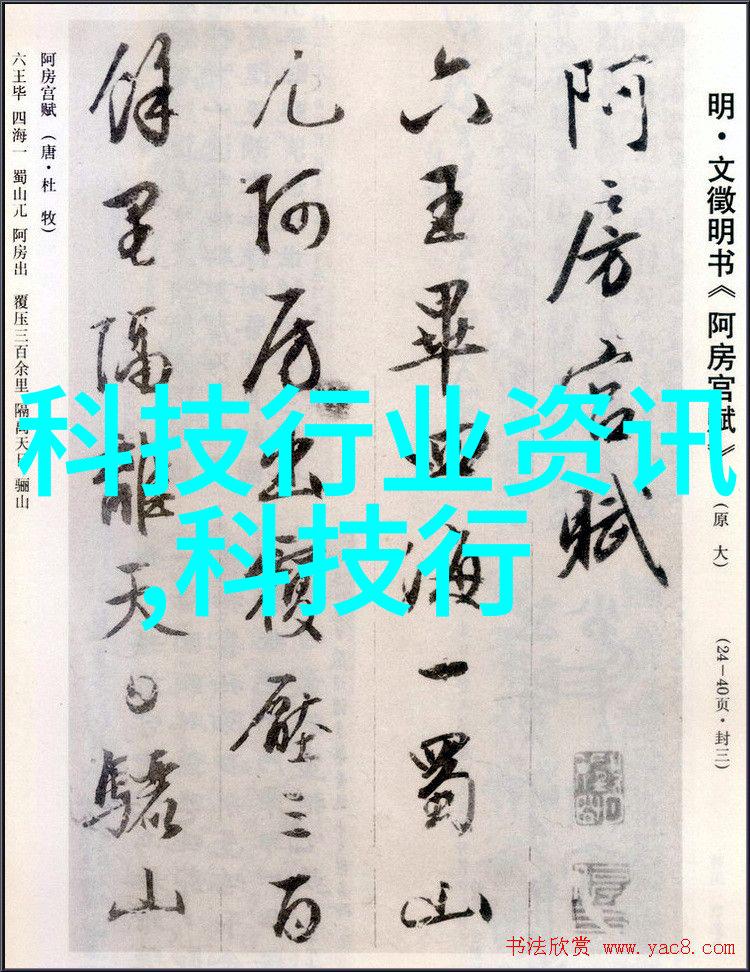 明·文徵明书《阿房宫赋》(原 大) (24—40页·封三)
阿房宫赋
六王畢四海一蜀山
兀阿房出覆壓三百
餘里隔離天日驪山
阿房宫赋(唐·杜 牧)
六王毕 四海一 蜀山兀 阿房出 覆压三百余里 隔离天日 骊山
科技行业资讯
,科技行
书法欣赏 www.yac8.com